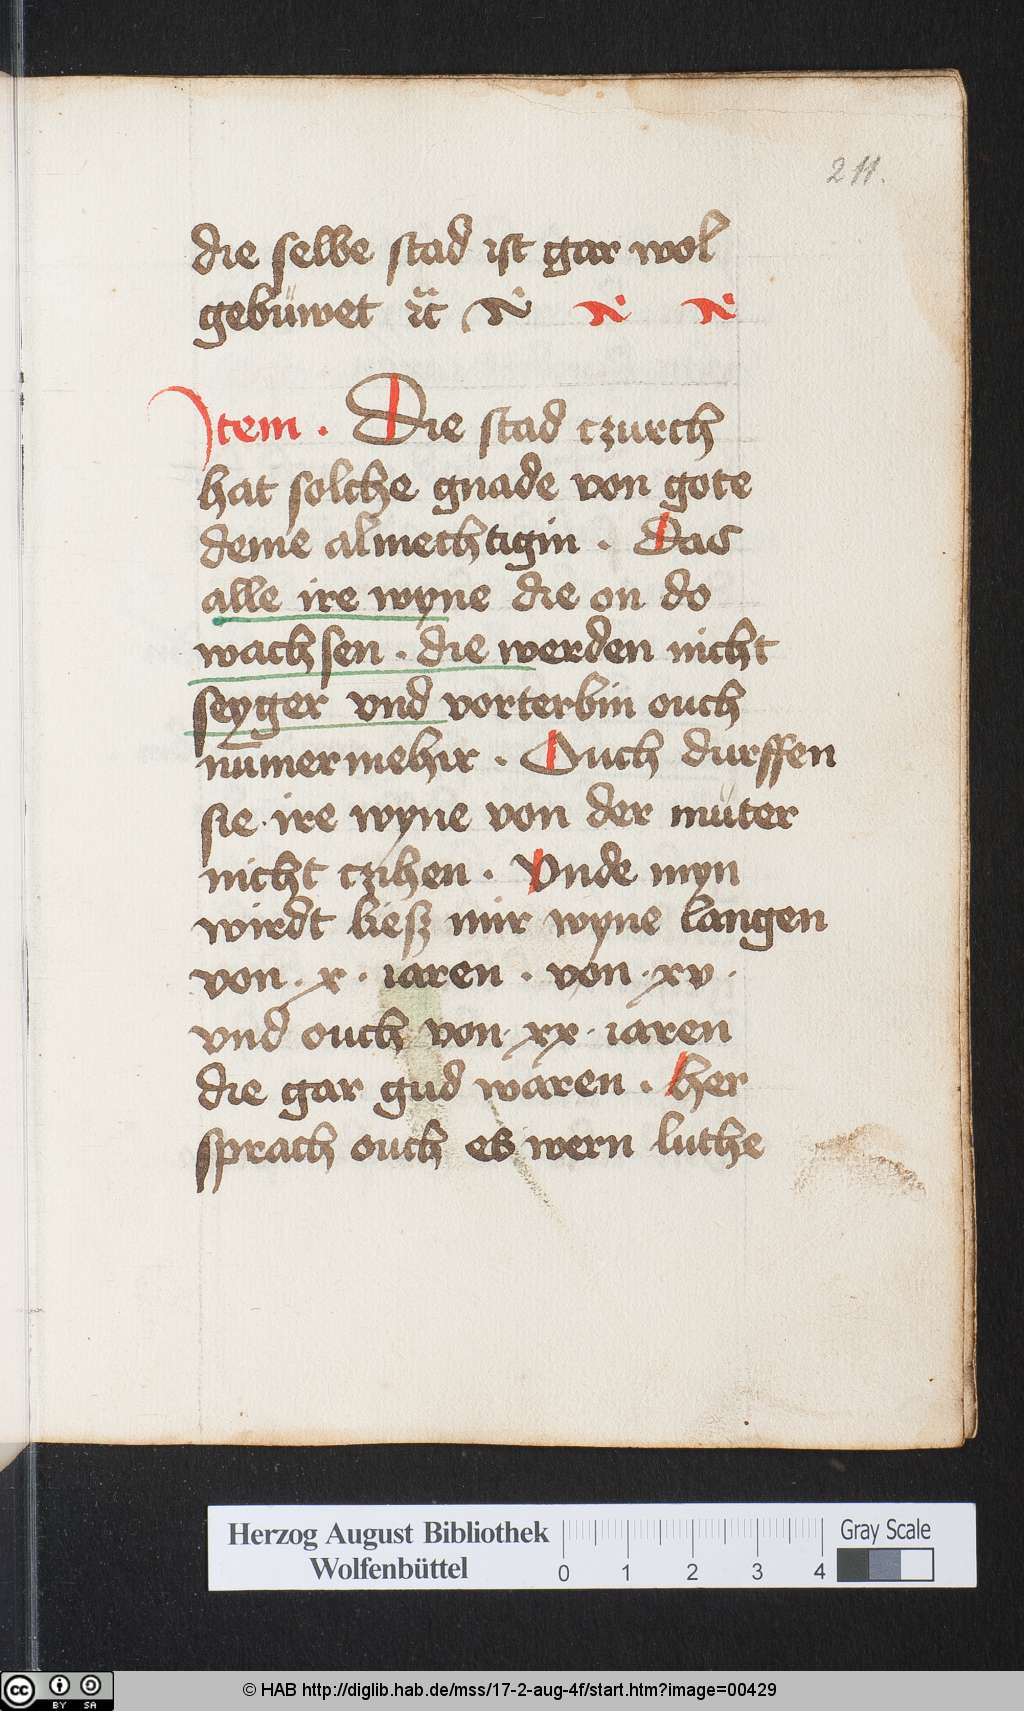 211.
die selbe stad ist gar wol
gebüwet ꝛc̈
Item . Die stad czurch
hat solche gnade von gote
deme almechtigin . Das
alle ire wyne die on do
wachsen . die werden nicht
seyger vnd vorterbin ouch
nūmermehir . Ouch durffen
sie ire wyne von der müter
nicht czihen . Vnde myn
wirdt ließ mir wyne langen
von . x . iaren . von . xv .
vnd ouch von . xx . iaren
die gar gud waren . her
sprach ouch es wern luthe
Herzog August Bibliothek
Wolfenbüttel
0 1 2 3 4
Gray Scale
cc BY SA
© HAB http://diglib.hab.de/mss/17-2-aug-4f/start.htm?image=00429